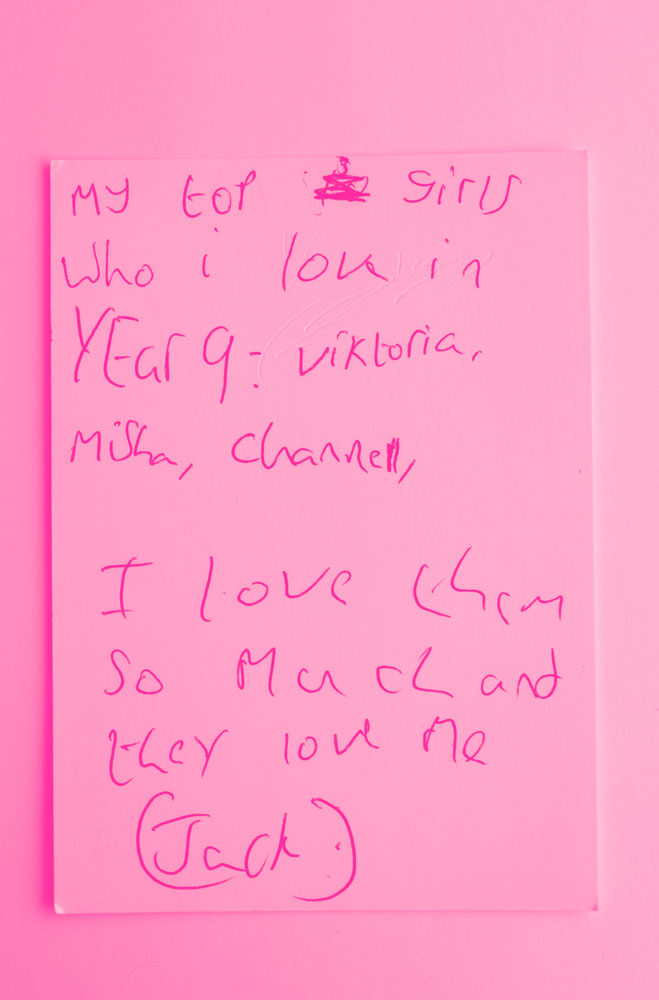 My top 3 girls
who i love in
YEar 9: viktoria,
Misha, channell,
I love them
so Much and
they love Me
(Jack.)